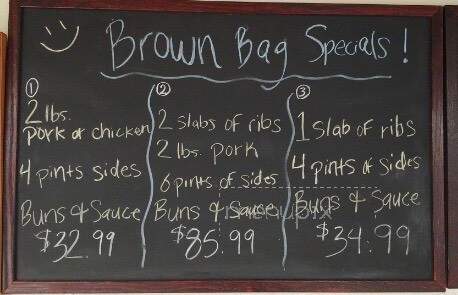 Brown Bag Specials!
①
2 lbs.
pork or chicken
4 pints sides
Buns & Sauce
$32.99
②
2 slabs of ribs
2 lbs. pork
6 pints of sides
Buns & Sauce
$85.99
③
1 slab of ribs
4 pints of sides
Buns & Sauce
$34.99